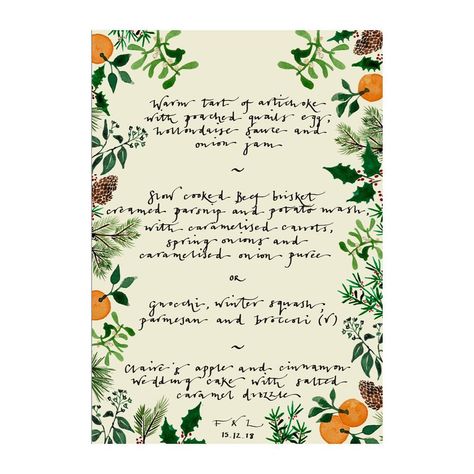 Warm tart of artichoke
with poached quails egg,
hollandaise sauce and
onion jam
~
Slow cooked Beef brisket
creamed parsnip and potato mash
with caramelised carrots,
spring onions and
caramelised onion purée
or
Gnocchi, winter squash,
parmesan and broccoli (v)
~
Claire's apple and cinnamon
wedding cake with salted
caramel drizzle
F & L
15.12.18